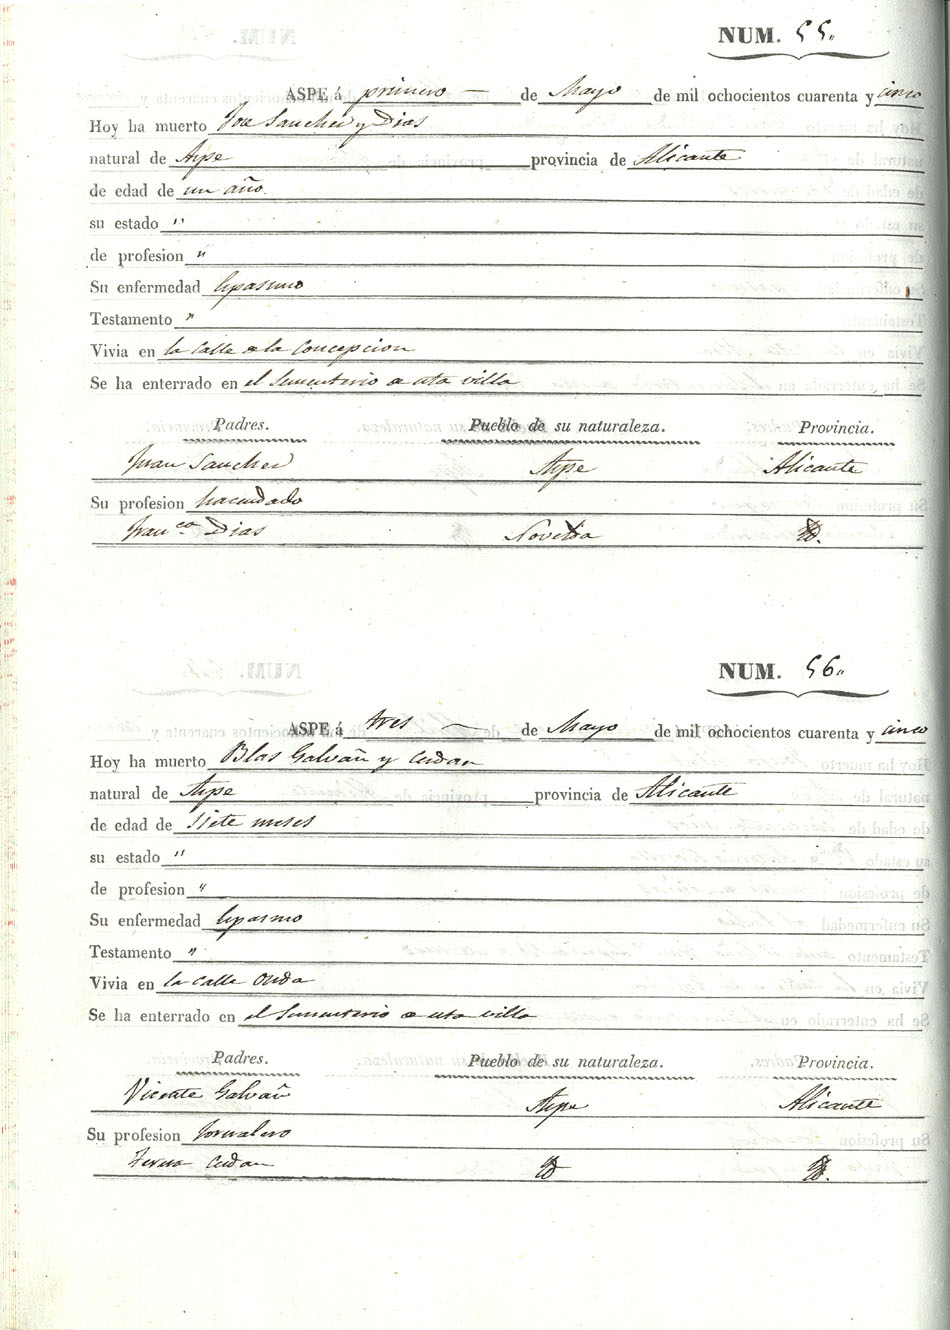 NUM. 55.
ASPE á primero de Mayo de mil ochocientos cuarenta y cinco
Hoy ha muerto Jose Sanchez y Dias
natural de Aspe provincia de Alicante
de edad de un año.
su estado "
de profesion "
Su enfermedad Espasmo
Testamento "
Vivia en la Calle de la Concepcion
Se ha enterrado en el Sementerio de esta villa
Padres. Pueblo de su naturaleza. Provincia.
Juan Sanchez Aspe Alicante
Su profesion hacendado
Fran.ca Dias Novelda Yd.
NUM. 56.
ASPE á tres de Mayo de mil ochocientos cuarenta y cinco
Hoy ha muerto Blas Galvañ y
natural de Aspe provincia de Alicante
de edad de siete meses
su estado "
de profesion "
Su enfermedad Espasmo
Testamento "
Vivia en la calle Onda
Se ha enterrado en el Sementerio de esta villa
Padres. Pueblo de su naturaleza. Provincia.
Vicente Galvañ Aspe Alicante
Su profesion Jornalero
Teresa Yd Yd.